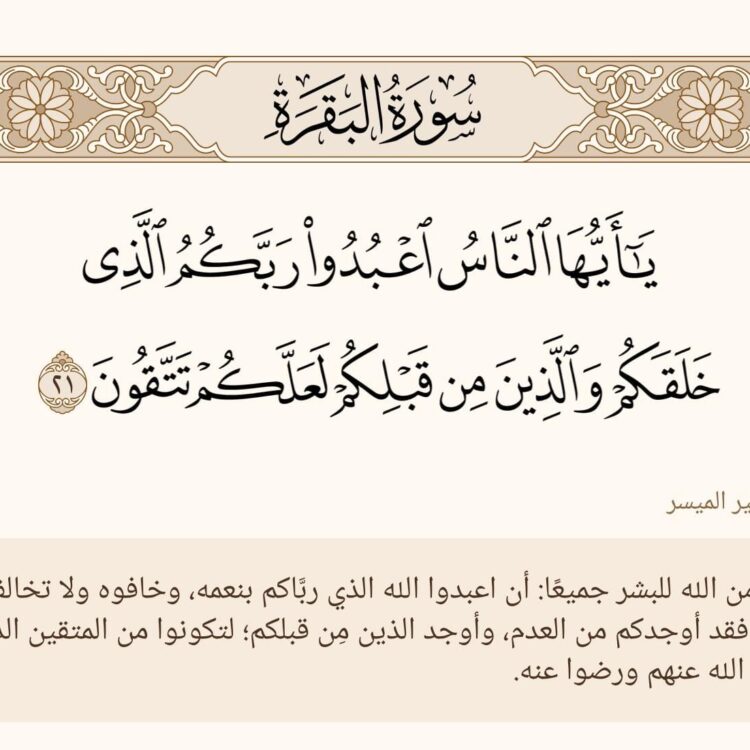 سُورَةُ البَقَرَةِ
يَٰٓأَيُّهَا ٱلنَّاسُ ٱعۡبُدُواْ رَبَّكُمُ ٱلَّذِى
خَلَقَكُمۡ وَٱلَّذِينَ مِن قَبۡلِكُمۡ لَعَلَّكُمۡ تَتَّقُونَ ٢١
الميسر
الله للبشر جميعًا: أن اعبدوا الله الذي ربَّاكم بنعمه، وخافوه ولا
فقد أوجدكم من العدم، وأوجد الذين مِن قبلكم؛ لتكونوا من المتقين
الله عنهم ورضوا عنه.